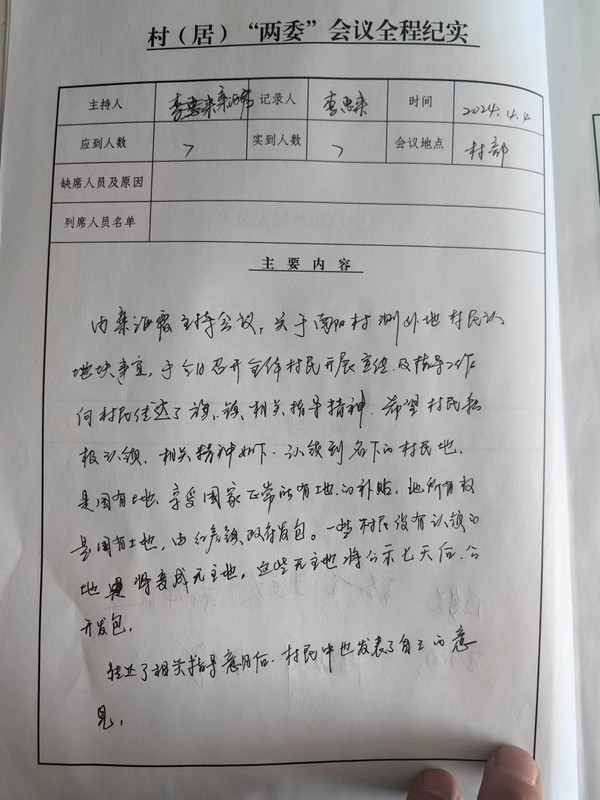 村(居)“两委”会议全程纪实
主持人 记录人 李忠来 时间 2024.4.4
应到人数 7 实到人数 7 会议地点 村部
缺席人员及原因
列席人员名单
主要内容
由 主持会议,关于 村测外地村民认
地块事宜,于今日召开全体村民开展宣传及指导工作
向村民传达了旗、镇相关指导精神.希望村民积
极认领.相关精神如下.认领到名下的村民地.
是国有土地,享受国家正常所有地的补贴,地所有权
是国有土地,由 镇政府发包。一些村民没有认领的
地 将变成无主地,这些无主地将公示七天后.公
开发包.
传达了相关指导意见后.村民中也发表了自己的意
见.